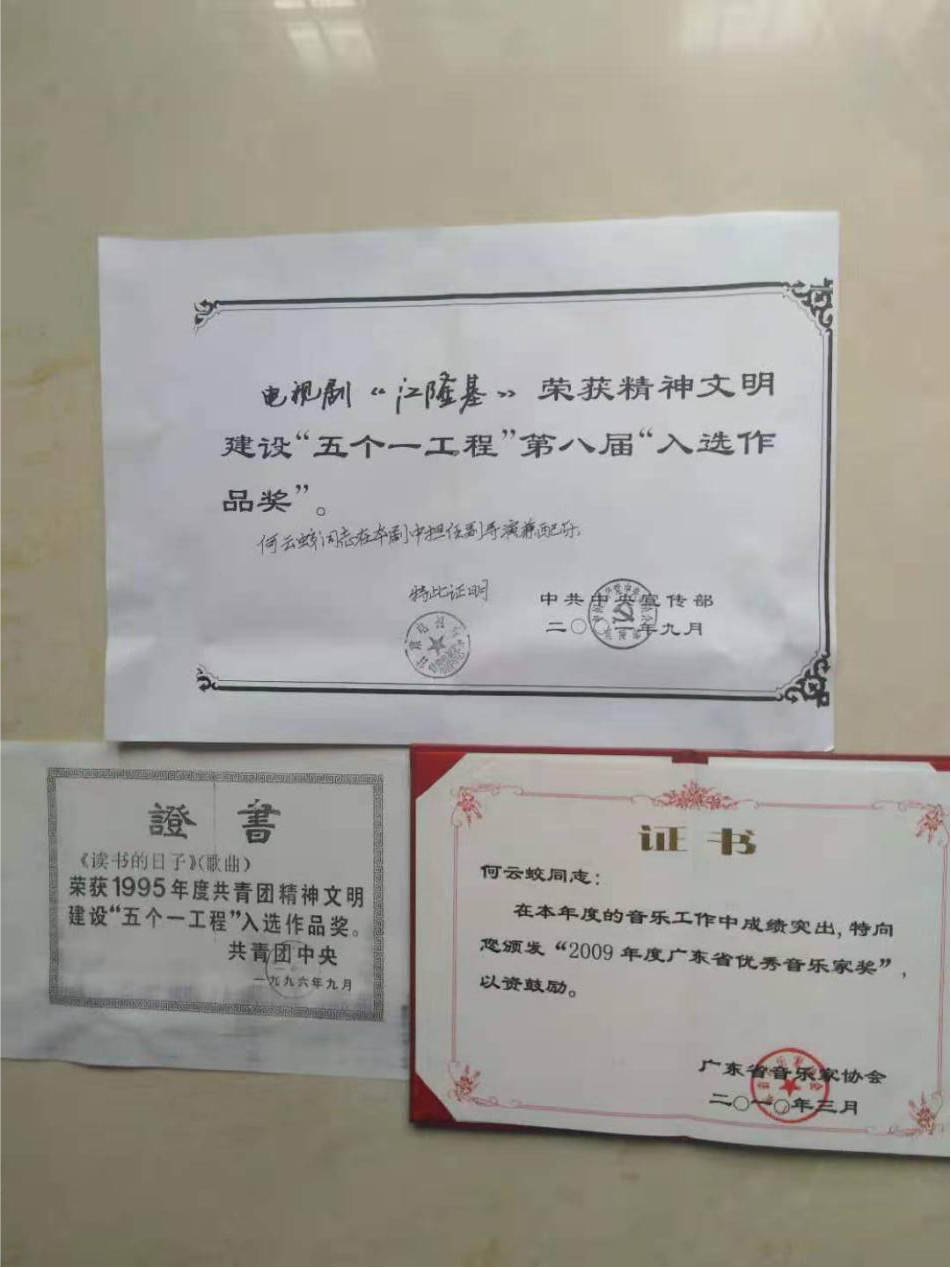 电视剧《江隆基》荣获精神文明
建设“五个一工程”第八届“入选作
品奖”。
何云蛟同志在本剧中担任副导演兼配乐
特此证明
中共中央宣传部
二〇〇一年九月
證書
《读书的日子》(歌曲)
荣获1995年度共青团精神文明
建设“五个一工程”入选作品奖。
共青团中央
一九九六年九月
证书
何云蛟同志:
在本年度的音乐工作中成绩突出,特向
您颁发“2009年度广东省优秀音乐家奖”,
以资鼓励。
广东省音乐家协会
二〇一〇年三月